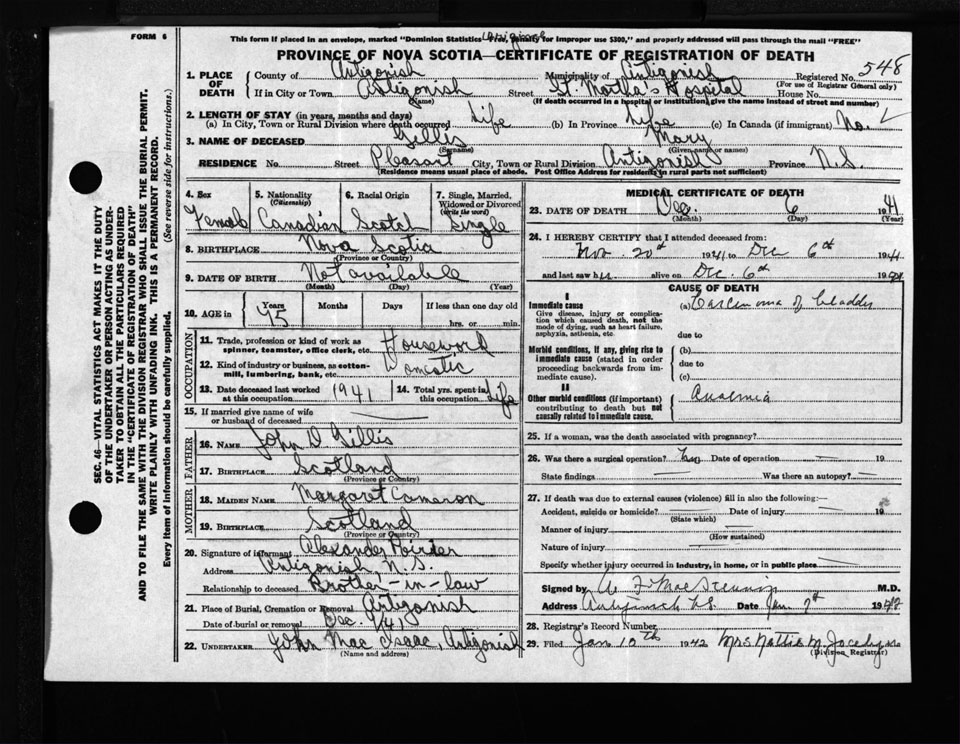 FORM 6
This form if placed in an envelope, marked "Dominion Statistics Free, penalty for improper use $300," and properly addressed will pass through the mail "FREE"
PROVINCE OF NOVA SCOTIA—CERTIFICATE OF REGISTRATION OF DEATH
1. PLACE OF DEATH
County of Antigonish Municipality of Antigonish Registered No. 548
(For use of Registrar General only)
If in City or Town Antigonish Street St. Martha's Hospital House No.
(Name) (If death occurred in a hospital or institution, give the name instead of street and number)
2. LENGTH OF STAY (in years, months and days)
(a) In City, Town or Rural Division where death occurred Life (b) In Province Life (c) In Canada (if immigrant) No.
3. NAME OF DECEASED Gillis Mary
(Surname) (Given name or names)
RESIDENCE No. Street Pleasant City, Town or Rural Division Antigonish Province N.S.
(Residence means usual place of abode. Post Office Address for residents in rural parts not sufficient)
4. Sex
Female
5. Nationality
(Citizenship)
Canadian
6. Racial Origin
Scotch
7. Single, Married, Widowed or Divorced
(write the word)
Single
8. BIRTHPLACE Nova Scotia
(Province or Country)
9. DATE OF BIRTH Not available
(Month) (Day) (Year)
10. AGE in Years Months Days If less than one day old
hrs. or min.
OCCUPATION
11. Trade, profession or kind of work as spinner, teamster, office clerk, etc. Housework
12. Kind of industry or business, as cotton-mill, lumbering, bank, etc. Domestic
13. Date deceased last worked at this occupation 1941
14. Total yrs. spent in this occupation Life
15. If married give name of wife or husband of deceased
FATHER
16. NAME John D Gillis
17. BIRTHPLACE Scotland
(Province or Country)
MOTHER
18. MAIDEN NAME Margaret Cameron
19. BIRTHPLACE Scotland
(Province or Country)
20. Signature of informant Alexander
Address Antigonish, N.S.
Relationship to deceased Brother-in-law
21. Place of Burial, Cremation or Removal Antigonish
Date of burial or removal Dec. 9/41
22. UNDERTAKER John Mac Isaac, Antigonish
(Name and address)
MEDICAL CERTIFICATE OF DEATH
23. DATE OF DEATH Dec. 6 1941
(Month) (Day) (Year)
24. I HEREBY CERTIFY that I attended deceased from:
Nov. 20th 1941 to Dec 6th 1941
and last saw her alive on Dec. 6th 1941
CAUSE OF DEATH
I
Immediate cause
Give disease, injury or complication which caused death, not the mode of dying, such as heart failure, asphyxia, asthenia, etc.
(a) Carcinoma of bladder
due to
Morbid conditions, if any, giving rise to immediate cause (stated in order proceeding backwards from immediate cause).
(b)
due to
(c)
II
Other morbid conditions (if important) contributing to death but not causally related to immediate cause.
Anaemia
25. If a woman, was the death associated with pregnancy?
26. Was there a surgical operation? Date of operation 19
State findings Was there an autopsy?
27. If death was due to external causes (violence) fill in also the following:—
Accident, suicide or homicide? Date of injury 19
(State which)
Manner of injury
(How sustained)
Nature of injury
Specify whether injury occurred in industry, in home, or in public place
Signed by M.D.
Address Antigonish N.S. Date Jan 1942
28. Registrar's Record Number
29. Filed Jan 10th 1942 Mrs Nattie M.
(Division Registrar)
SEC. 46—VITAL STATISTICS ACT MAKES IT THE DUTY OF THE UNDERTAKER OR PERSON ACTING AS UNDERTAKER TO OBTAIN ALL THE PARTICULARS REQUIRED IN THE "CERTIFICATE OF REGISTRATION OF DEATH" AND TO FILE THE SAME WITH THE DIVISION REGISTRAR WHO SHALL ISSUE THE BURIAL PERMIT.
WRITE PLAINLY WITH UNFADING INK. THIS IS A PERMANENT RECORD.
Every item of information should be carefully supplied. (See reverse side for instructions.)